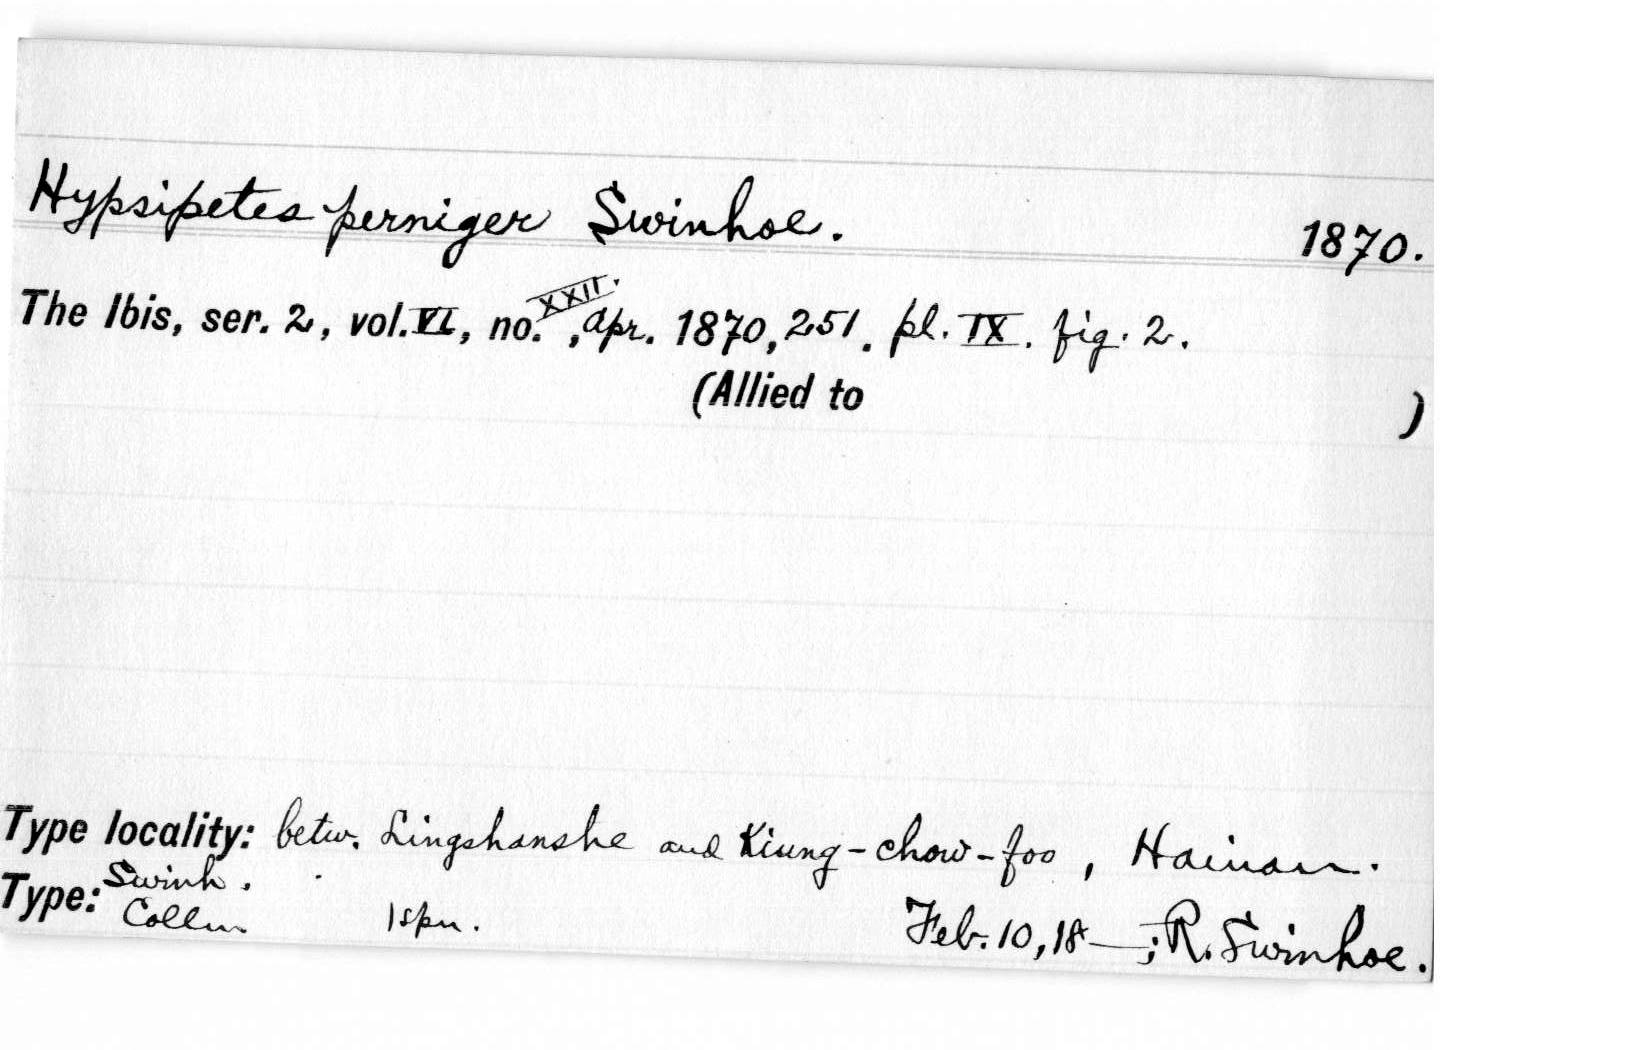 Hypsipetes perniger Swinhoe. 1870.
The Ibis, ser. 2, vol. VI, no. XXII., Apr. 1870, 251. pl. IX. fig. 2.
(Allied to )
Type locality: betw. Lingshanshe and Kiung-chow-foo, Hainan.
Type: Swinh. Colln 1 spn. Feb. 10, 18—; R. Swinhoe.